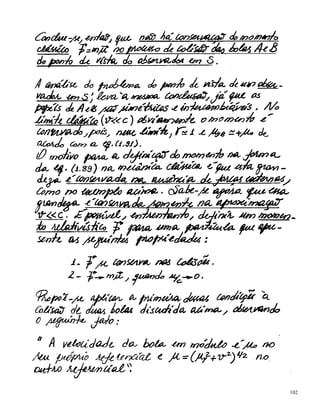 Conclue-se, então, que não há conservação do momento
clássico p⃗=mu⃗ no processo de colisão das bolas A e B
do ponto de vista do observador em S.
A análise do problema do ponto de vista de um obser-
vador em S', leva à mesma conclusão, já que os
papéis de A e B são simétricos e intercambiáveis. No
limite clássico (v<<c) obviamente o momento é
conservado, pois, nesse limite, Γ=1 e
acordo com a eq. (1.31).
O motivo para a definição do momento na forma
da eq. (1.29) na mecânica clássica é que esta gran-
deza é conservada na ausência de forças externas,
como no exemplo acima. Sabe-se agora que essa
grandeza é conservada somente na aproximação
v<<c. É possível, entretanto, definir um momen-
to relativístico p⃗ para uma partícula que apre-
sente as seguintes propriedades:
1- p⃗ se conserva nas colisões.
2- p⃗→mu⃗, quando u/c→0.
Propôs-se aplicar a primeira duas condições à
colisão de duas bolas discutida acima, observando
o seguinte fato:
" A velocidade da bola em módulo é u₀ no
seu próprio referencial e no
outro referencial".
102